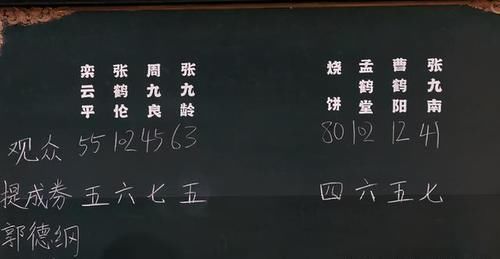 栾云平 张鹤伦 周九良 张九龄 烧饼 孟鹤堂 曹鹤阳 张九南
观众 55 102 45 63 80 102 12 41
提成券 五 六 七 五 四 六 五 七
郭德纲